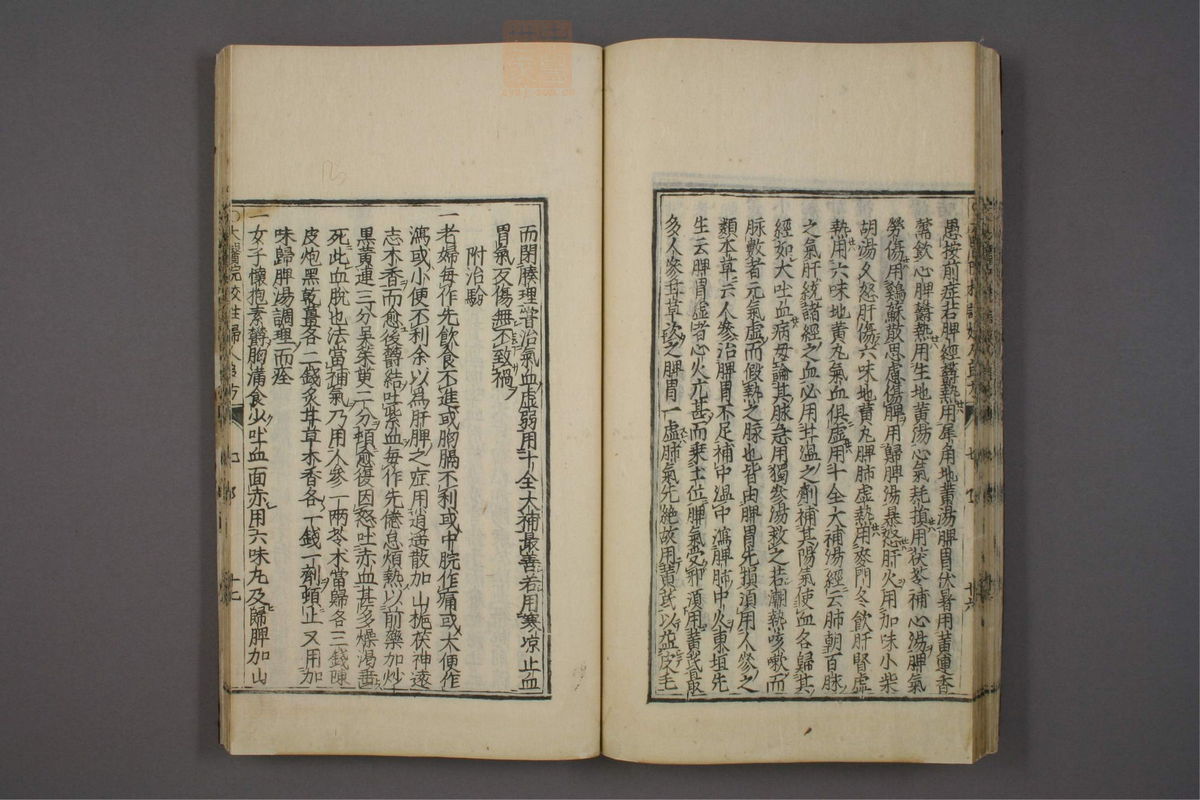 愚按前症若脾經鬱熱用犀角地黃湯脾胃伏暑用黃連香
薷飲心脾鬱熱用生地黃湯心氣耗損用茯苓補心湯脾氣
勞傷用鷄蘇散思慮傷脾用歸脾湯暴怒肝火用加味小柴
胡湯久怒肝傷六味地黃丸脾肺虛熱用麥門冬飲肝腎虛
熱用六味地黃丸氣血俱虛用十全大補湯經云肺朝百脉
之氣肝統諸經之血必用甘溫之劑補其陽氣使血各歸其
經如大吐血病毋論其脉急用獨參湯救之若潮熱咳嗽而
脉數者元氣虛而假熱之脉也皆由脾胃先損須用人參之
類本草云人參治脾胃不足補中溫中瀉脾肺中火東垣先
生云脾胃虛者心火亢甚而乘土位脾氣受邪須用黃芪最
多人參甘草次之脾胃一虛肺氣先絶故用黃芪以益皮毛
而閉腠理嘗治氣血虛弱用十全大補最善若用寒凉止血
胃氣反傷無不致禍
附治驗
一老婦每作先飲食不進或胸膈不利或中脘作痛或大便作
瀉或小便不利余以為肝脾之症用逍遙散加山梔茯神遠
志木香而愈後鬱結吐紫血每作先倦怠煩熱以前藥加炒
黑黃連三分吳茱萸二分頓愈復因怒吐赤血甚多燥渴垂
死此血脫也法當補氣乃用人參一兩苓朮當歸各三錢陳
皮炮黑乾薑各二錢炙甘草木香各一錢一劑頓止又用加
味歸脾湯調理而痊
一女子懷抱素鬱胸滿食少吐血面赤用六味丸及歸脾加山